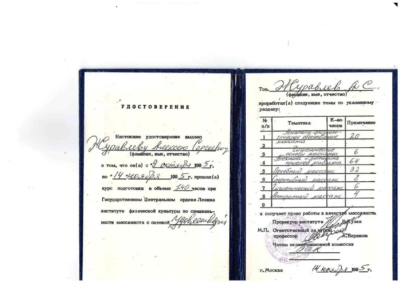 УДОСТОВЕРЕНИЕ
Настоящее удостоверение выдано
Журавлеву Алексею Сергеевичу
(фамилия, имя, отчество)
в том, что он(а) с " 9 " октября 1995 г.
по " 14 " ноября 1995 г. прошел(а)
курс подготовки в объеме 140 часов при
Государственном Центральном ордена Ленина
институте физической культуры по специаль-
ности массажиста с оценкой
Тов. Журавлев А С.
(фамилия, имя, отчество)
проработал(а) следующие темы по указанному
разделу:
№ п/п Тематика К-во часов Примечание
1 20
2 6
3 64
4 Лечебный массаж 32
5 Спортивный массаж 8
6 Гигиенический массаж 6
7 массаж 4
8
и получает право работы в качестве массажиста
Проректор института
М.П. Ответственный за
профессор А.Бирюков
Члены экзаменационной комиссии
г.Москва 14 ноября 1995г.